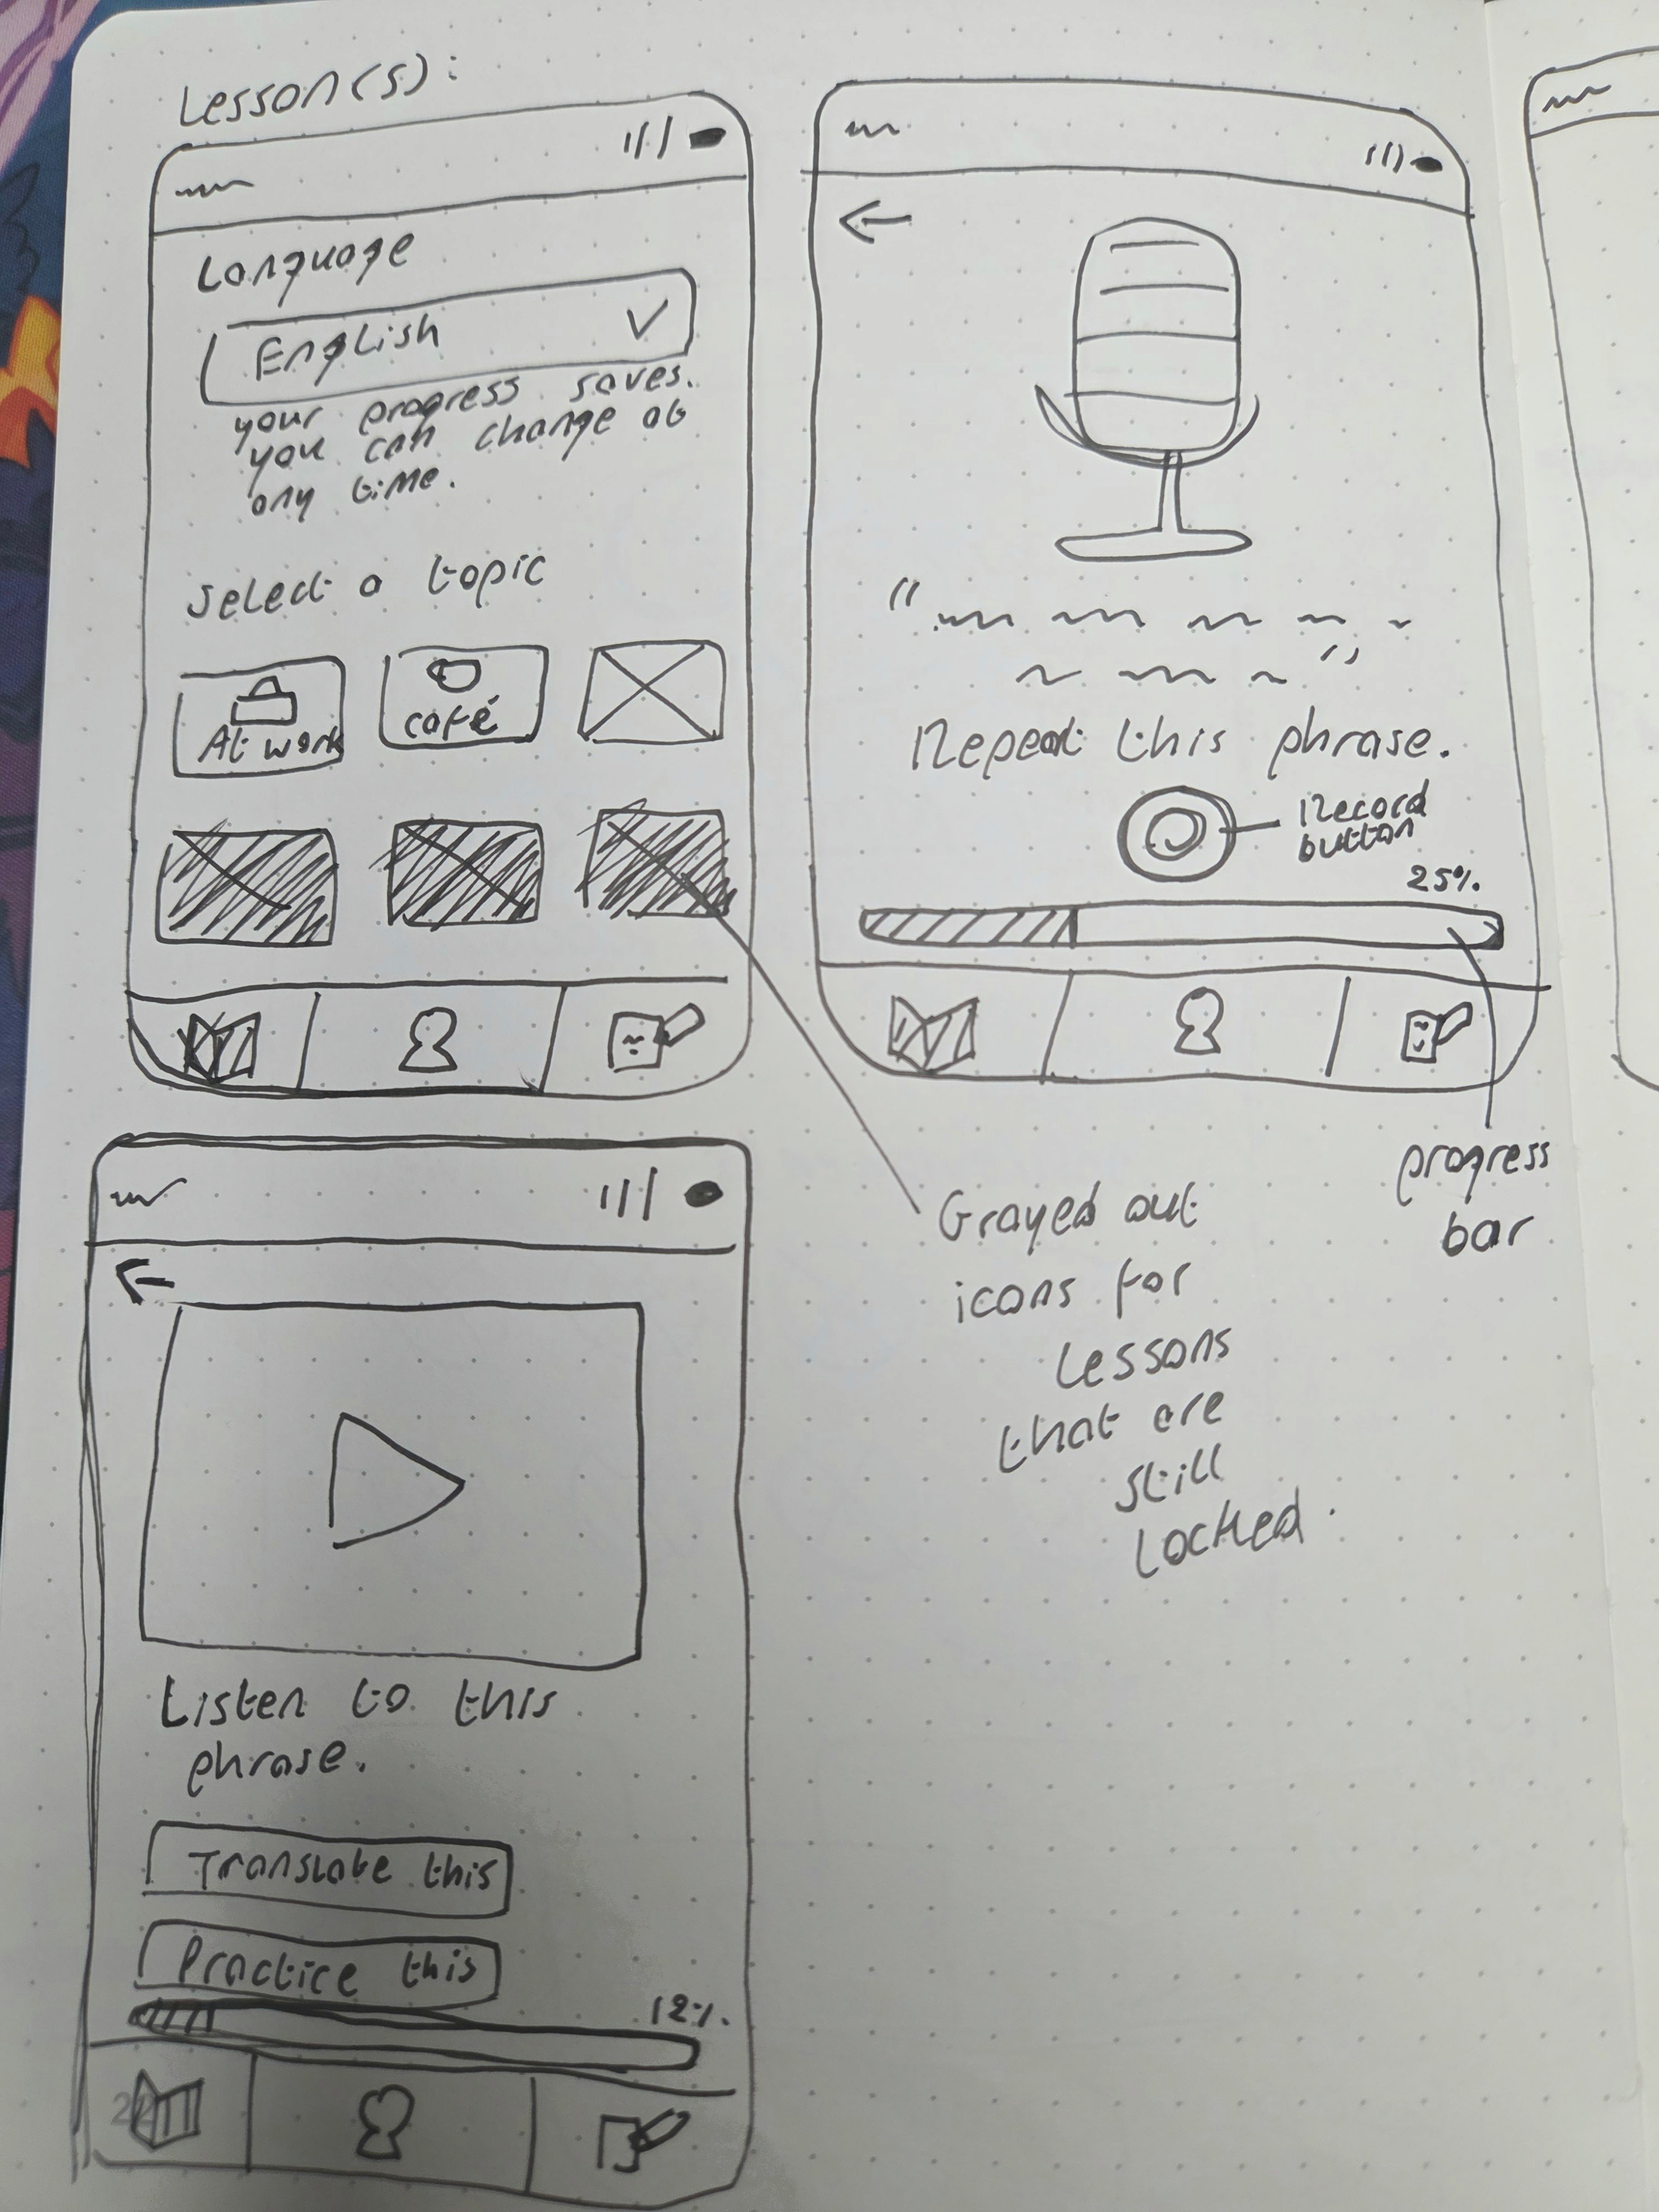 Lesson(s):
Language
English
your progress saves.
you can change at
any time.
Select a topic
At work
café
Repeat this phrase.
Record
button
25%
progress
bar
Grayed out
icons for
Lessons
that are
still
Locked.
Listen to this
phrase.
Translate this
Practice this
12%
22